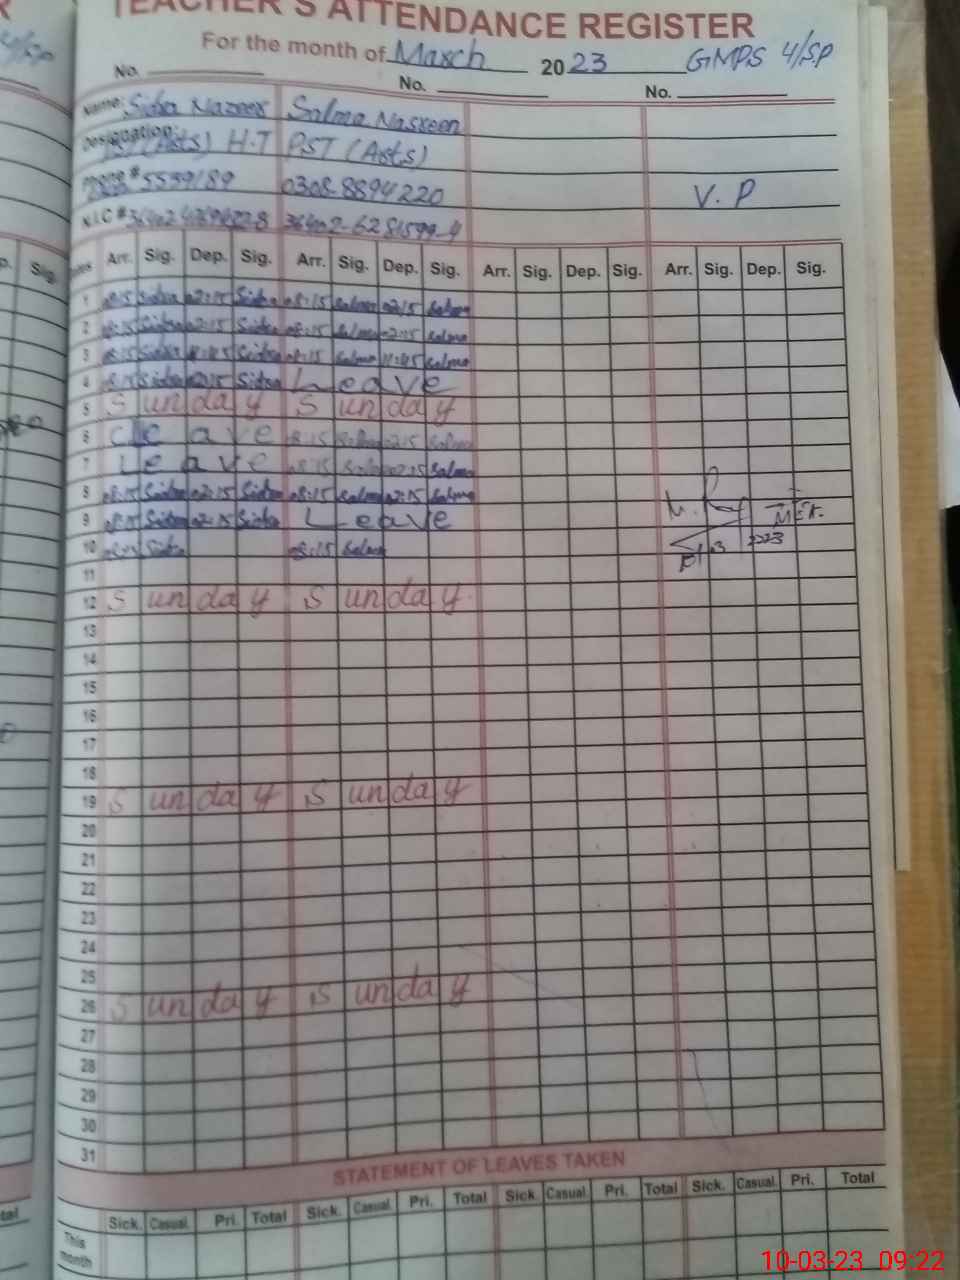 TEACHER'S ATTENDANCE REGISTER
For the month of March 2023 GMPS 4/SP
No. No. No.
Name: Sidra Nazeer Salma Nasreen
Designation: PST (Arts) H.T PST (Arts)
Phone # 5539189 0308-8894220 V.P
N.I.C #
Dates Arr. Sig. Dep. Sig. Arr. Sig. Dep. Sig. Arr. Sig. Dep. Sig. Arr. Sig. Dep. Sig.
1 08:15 Sidra 02:15 Sidra 08:15 Salma 02:15 Salma
2 08:15 Sidra 02:15 Sidra 08:15 Salma 02:15 Salma
3 08:15 Sidra 11:45 Sidra 08:15 Salma 11:45 Salma
4 08:15 Sidra 02:15 Sidra Leave
5 Sunday Sunday
6 Leave 08:15 Salma 02:15 Salma
7 Leave 08:15 Salma 02:15 Salma
8 08:15 Sidra 02:15 Sidra 08:15 Salma 02:15 Salma
9 08:15 Sidra 02:15 Sidra Leave
10 Sidra 08:15 Salma 2023
11
12 Sunday Sunday
13
14
15
16
17
18
19 Sunday Sunday
20
21
22
23
24
25
26 Sunday Sunday
27
28
29
30
31
STATEMENT OF LEAVES TAKEN
Sick. Casual. Pri. Total Sick. Casual. Pri. Total Sick. Casual. Pri. Total Sick. Casual. Pri. Total
This month
10-03-23 09:22